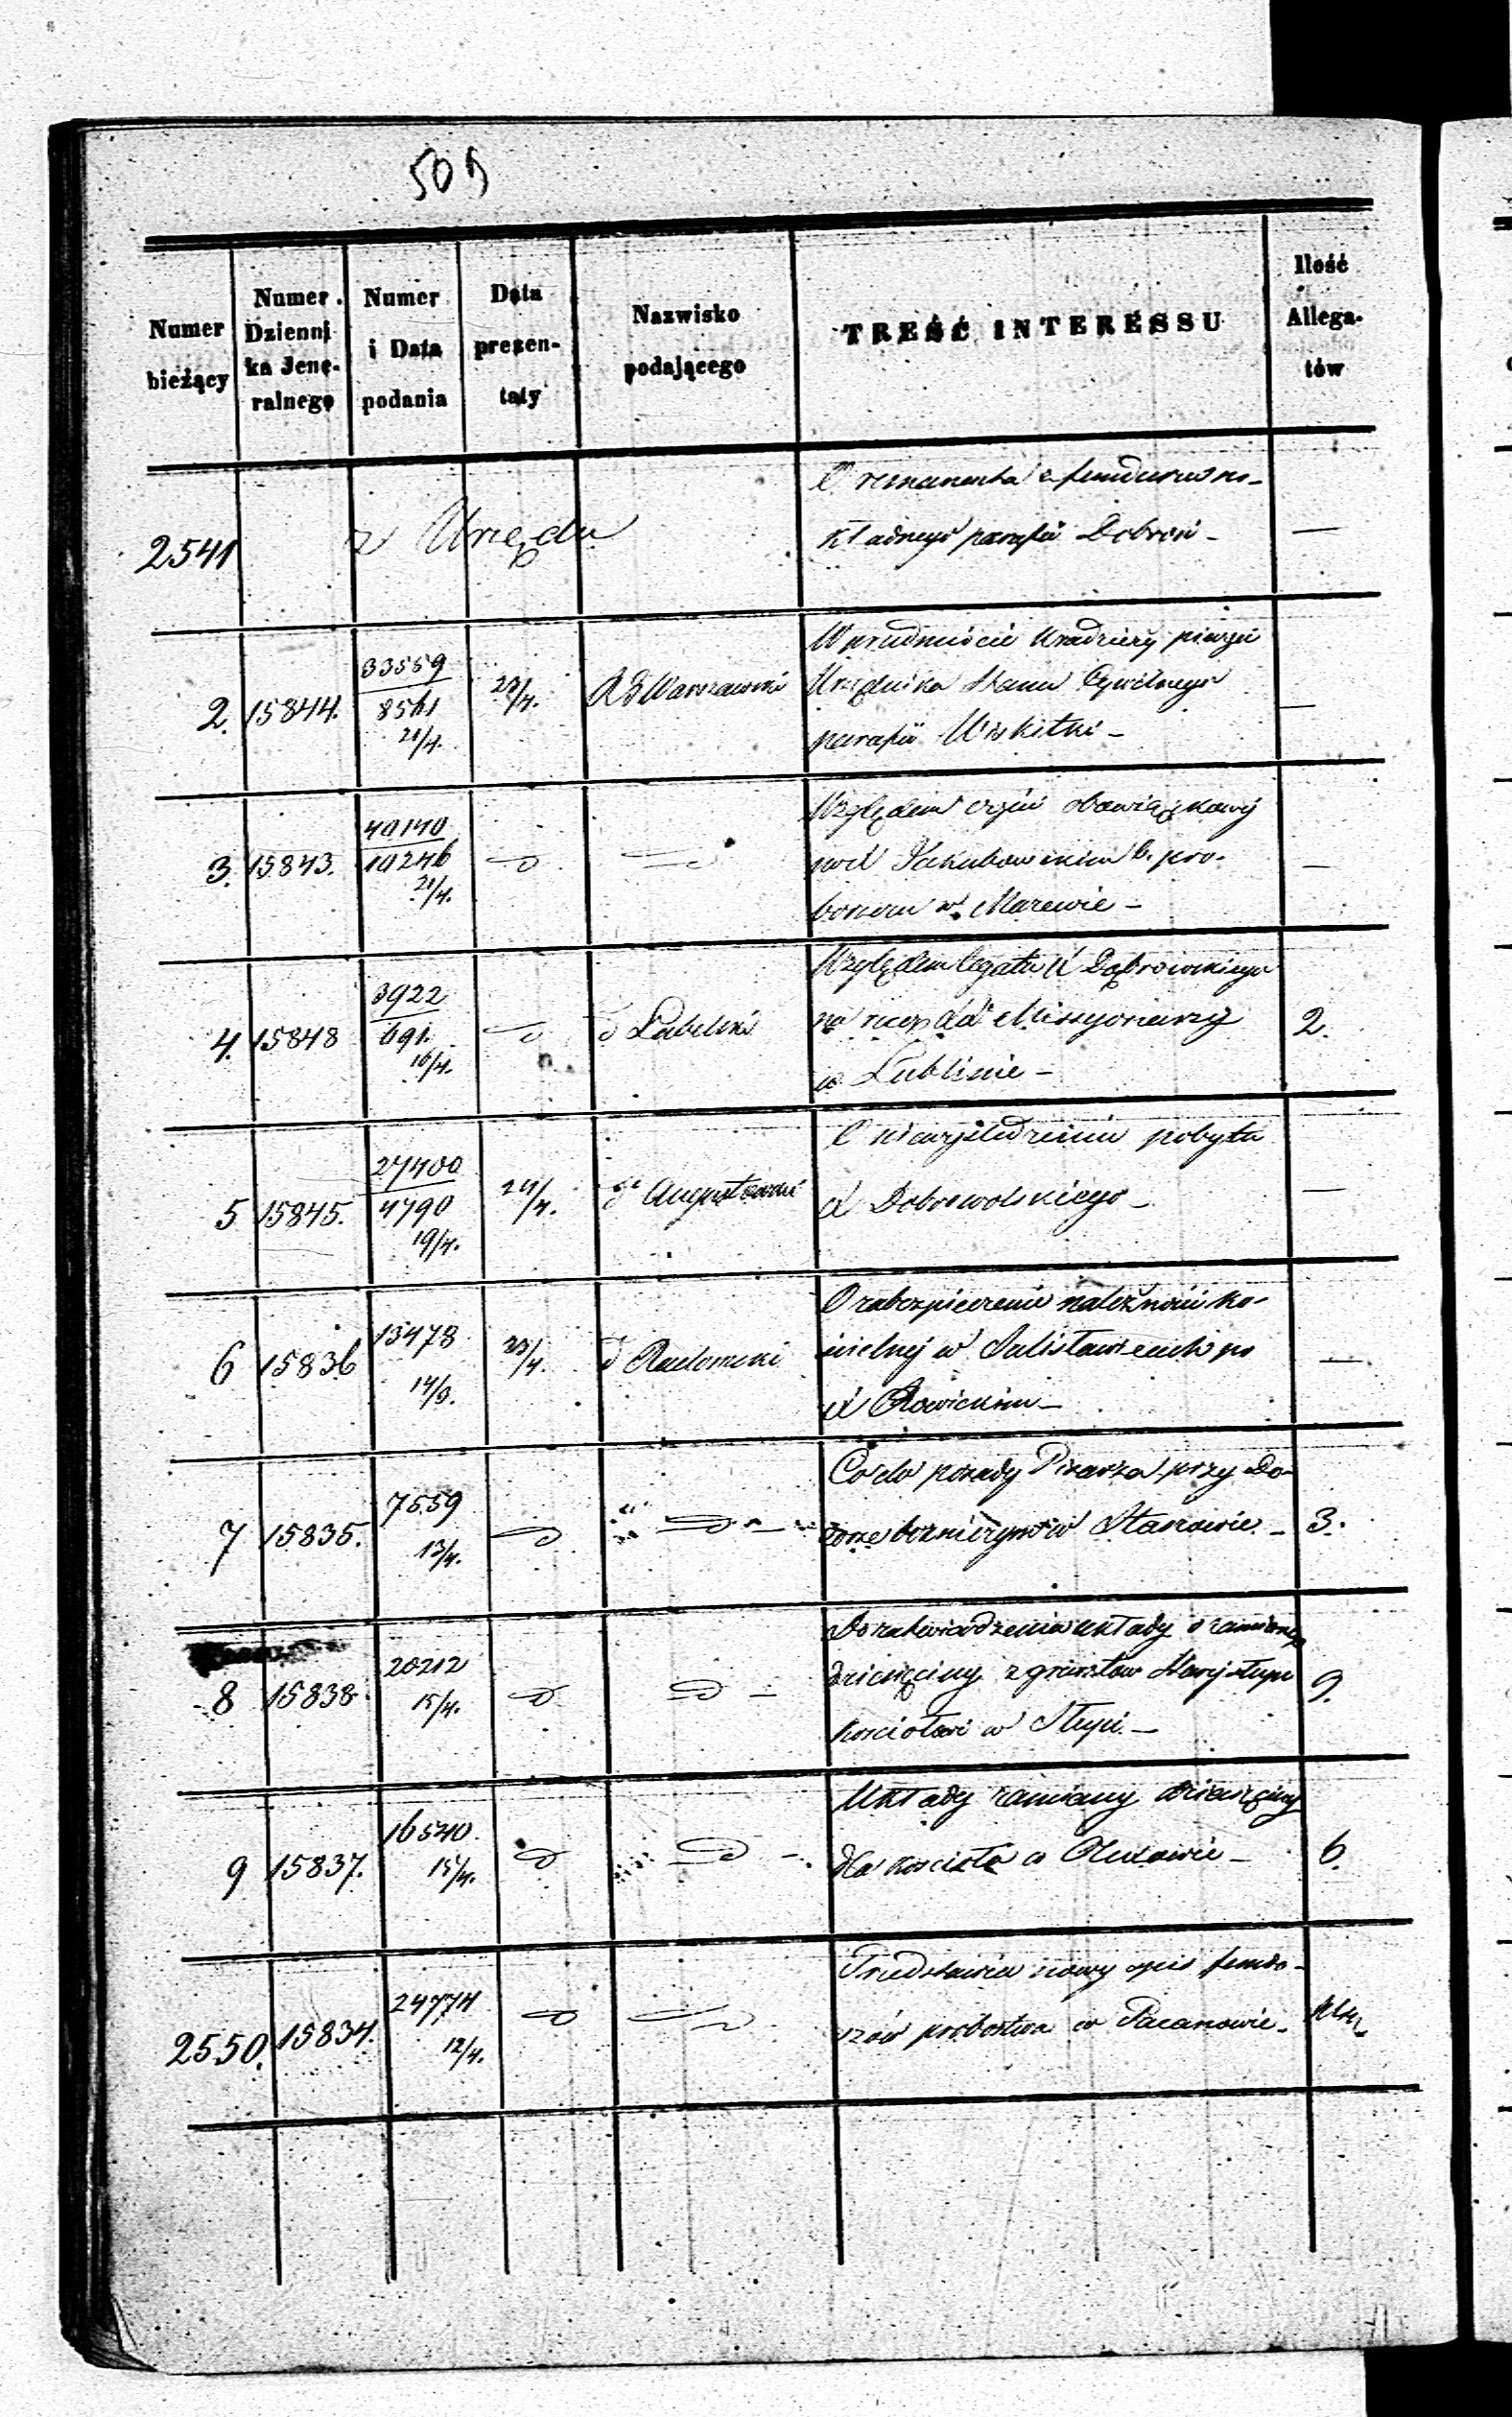 509
Numer bieżący
Numer Dziennika Jeneralnego
Numer i Data podania
Data prezentaty
Nazwisko podającego
TREŚĆ INTERESSU
Ilość Allegatów
2541
z Urzędu
O remanenta z funduszu
kładnego parafii Dobroń –
—
2. 15844.
33559
8561
21/4.
23/4.
R G Warszawski
W przedmiocie kradzieży pieczęci
Urzędnika Stanu Cywilnego
parafii Wiskitki –
—
3. 15843.
40140
10246
21/4.
Względem części obowiązkowej
pod Jakubowskim b. pro-
boszczu w Marewie –
—
4. 15848
3922
691.
16/4.
d Lubelski
Względem legatu X Dąbrowskiego
na rzecz Missyonarzy
w Lublinie –
2.
5 15845.
27400
4790
19/4.
24/4.
Augustowski
O niewyśledzeniu pobytu
X Dobrowolskiego –
—
6 15836
13478
14/3.
23/4.
d Radomski
O zabezpieczenie należności ko-
ścielnej w Sulisławicach po
X Rowickim –
—
7 15835.
7559
13/4.
Co do posady Pisarza przy Do-
zorze bożniczym w Staszowie. –
3.
8 15838.
20212
15/4.
Do zatwierdzenia układy o zamianę
dziesięciny z gruntów Starej Słupi
kościołowi w Słupi. –
9.
9 15837.
16540
15/4.
Układy zamiany dziesięciny
dla kościoła w –
6.
2550. 15834.
24774
12/4.
Przedstawia nowy opis fundu-
szów probostwa w Pacanowie –